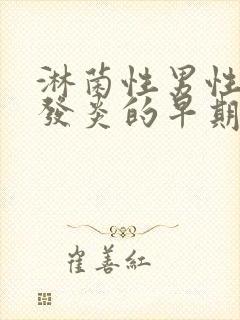 淋菌性男性
發炎的早期
崔善紅